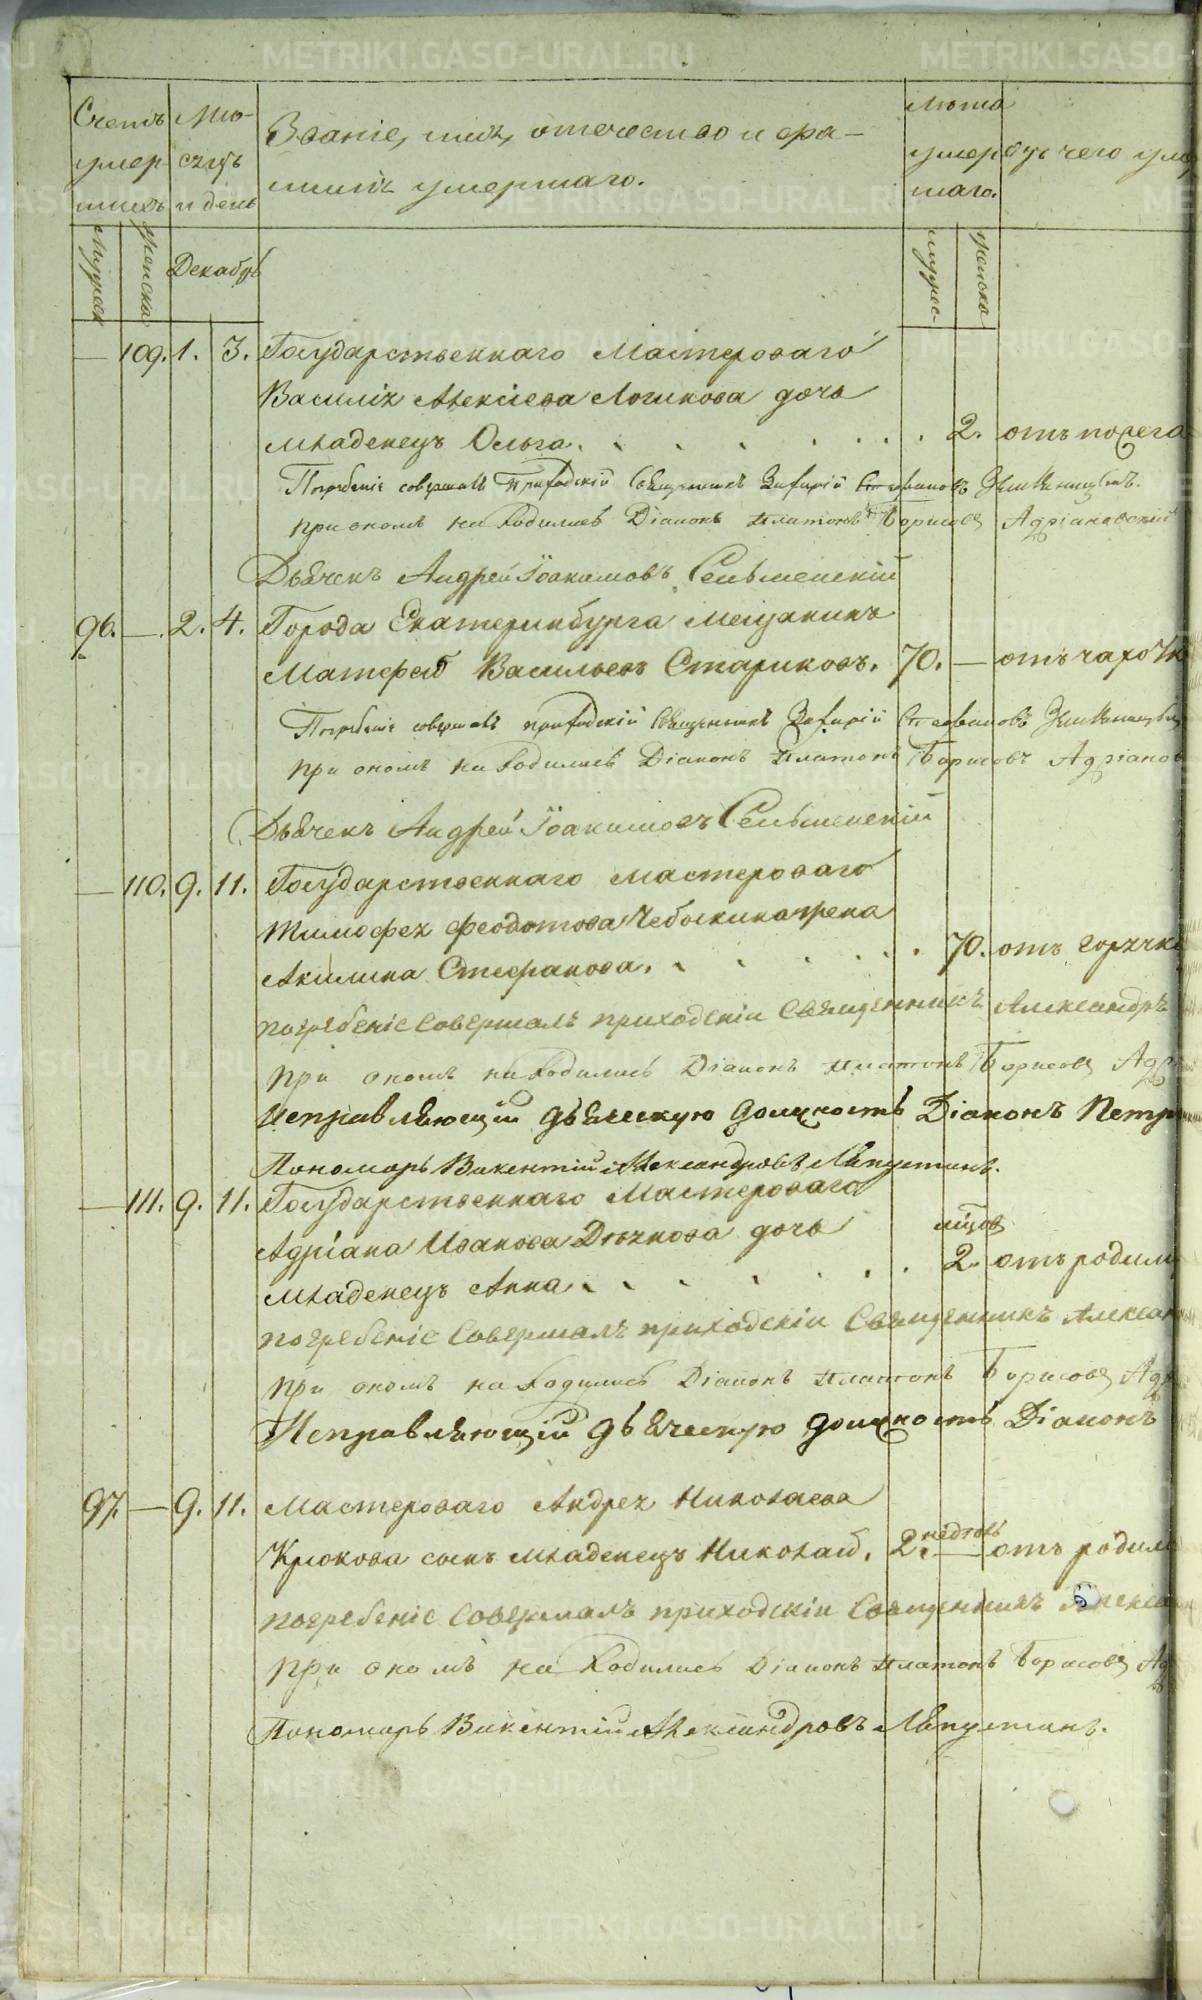 METRIKI.GASO-URAL.RU
Счетъ умер- шихъ
Мѣ- сяцъ и день
Званіе, имя, отечество и фа-
милія умершаго.
Лѣта умер- шаго.
отъ чего умер
Мужеск
Женска
Декабрь
мужес-
женска
— 109. 1. 3. Государственнаго Мастероваго
Василія Алексіева Логинова дочь
младенецъ Ольга. 2. отъ
Погребеніе совершалъ Приходскій Священникъ Захарій Стефановъ
при ономъ находились Діаконъ Платонъ Борисовъ Адріановскій
Дьячекъ Андрей Іоакимовъ Сельменскій
96. — 2. 4. Города Екатеринбурга мещанинъ
Матфей Васильевъ Стариковъ. 70. — отъ чахотк
Погребеніе совершалъ приходскій Священникъ Захарій Стефановъ
при ономъ находились Діаконъ Платонъ Борисовъ Адріанов
Дьячекъ Андрей Іоакимовъ Сельменскій
— 110. 9. 11. Государственнаго мастероваго
Тимофея Феодотова Чебыкина жена
Акилина Стефанова. 70. отъ горячк
погребеніе совершалъ приходскіи Священникъ Александръ
при ономъ находились Діаконъ Платонъ Борисовъ Адр
Исправляющій дьяческую должность Діаконъ Петр
Пономарь Викентій Александровъ Ляпустинъ.
— 111. 9. 11. Государственнаго Мастероваго
Адріана Иванова дочь мѣсяцов
младенецъ Анна 2. отъ родим
погребеніе совершалъ приходскіи Священникъ Алексан
при ономъ находились Діаконъ Платонъ Борисовъ Адр
Исправляющій дьяческую должность Діаконъ
97. — 9. 11. Мастероваго Андрея Николаева
Крюкова сынъ младенецъ Николай. 2. недѣль — отъ родим
погребеніе совершалъ приходскіи Священникъ Алексан
при ономъ находились Діаконъ Платонъ Борисовъ Ад
Пономарь Викентій Александровъ Ляпустинъ.